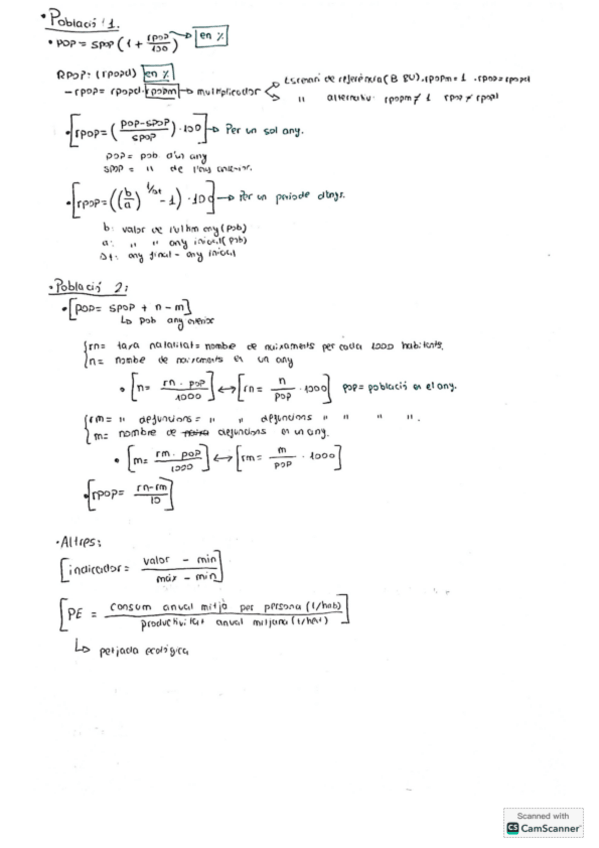 • Població 1.
• POP = SPOP (1 + rpop/100) → en %
RPOP: (rpopd) en %
- rpop = rpopd · rpopm → multiplicador
Escenari de referència (B SU). rpopm = 1 . rpop = rpopd
" alternatiu: rpopm ≠ 1 rpop ≠ rpopd
• [rpop = (POP - SPOP / SPOP) · 100] → Per un sol any.
POP = pob d'un any
SPOP = " de l'any anterior.
• [rpop = ((b/a)^(1/Δt) - 1) · 100] → Per un període d'anys.
b: valor de l'últim any (pob)
a: " " any inicial (pob)
Δt: any final - any inicial
• Població 2:
• [POP = SPOP + n - m]
↳ pob any anterior
rn = taxa natalitat = nombre de naixaments per cada 1000 habitants.
n = nombre de naixaments en un any
• [n = rn · POP / 1000] ↔ [rn = n / POP · 1000] POP = població en el any.
rm = " defuncions = " " defuncions " " " ".
m = nombre de defuncions en un any.
• [m = rm · POP / 1000] ↔ [rm = m / POP · 1000]
• [rpop = rn - rm / 10]
• Altres:
[indicador = valor - min / màx - min]
[PE = consum anual mitjà per persona (t/hab) / productivitat anual mitjana (t/hea)]
↳ petjada ecològica
Scanned with
CS CamScanner